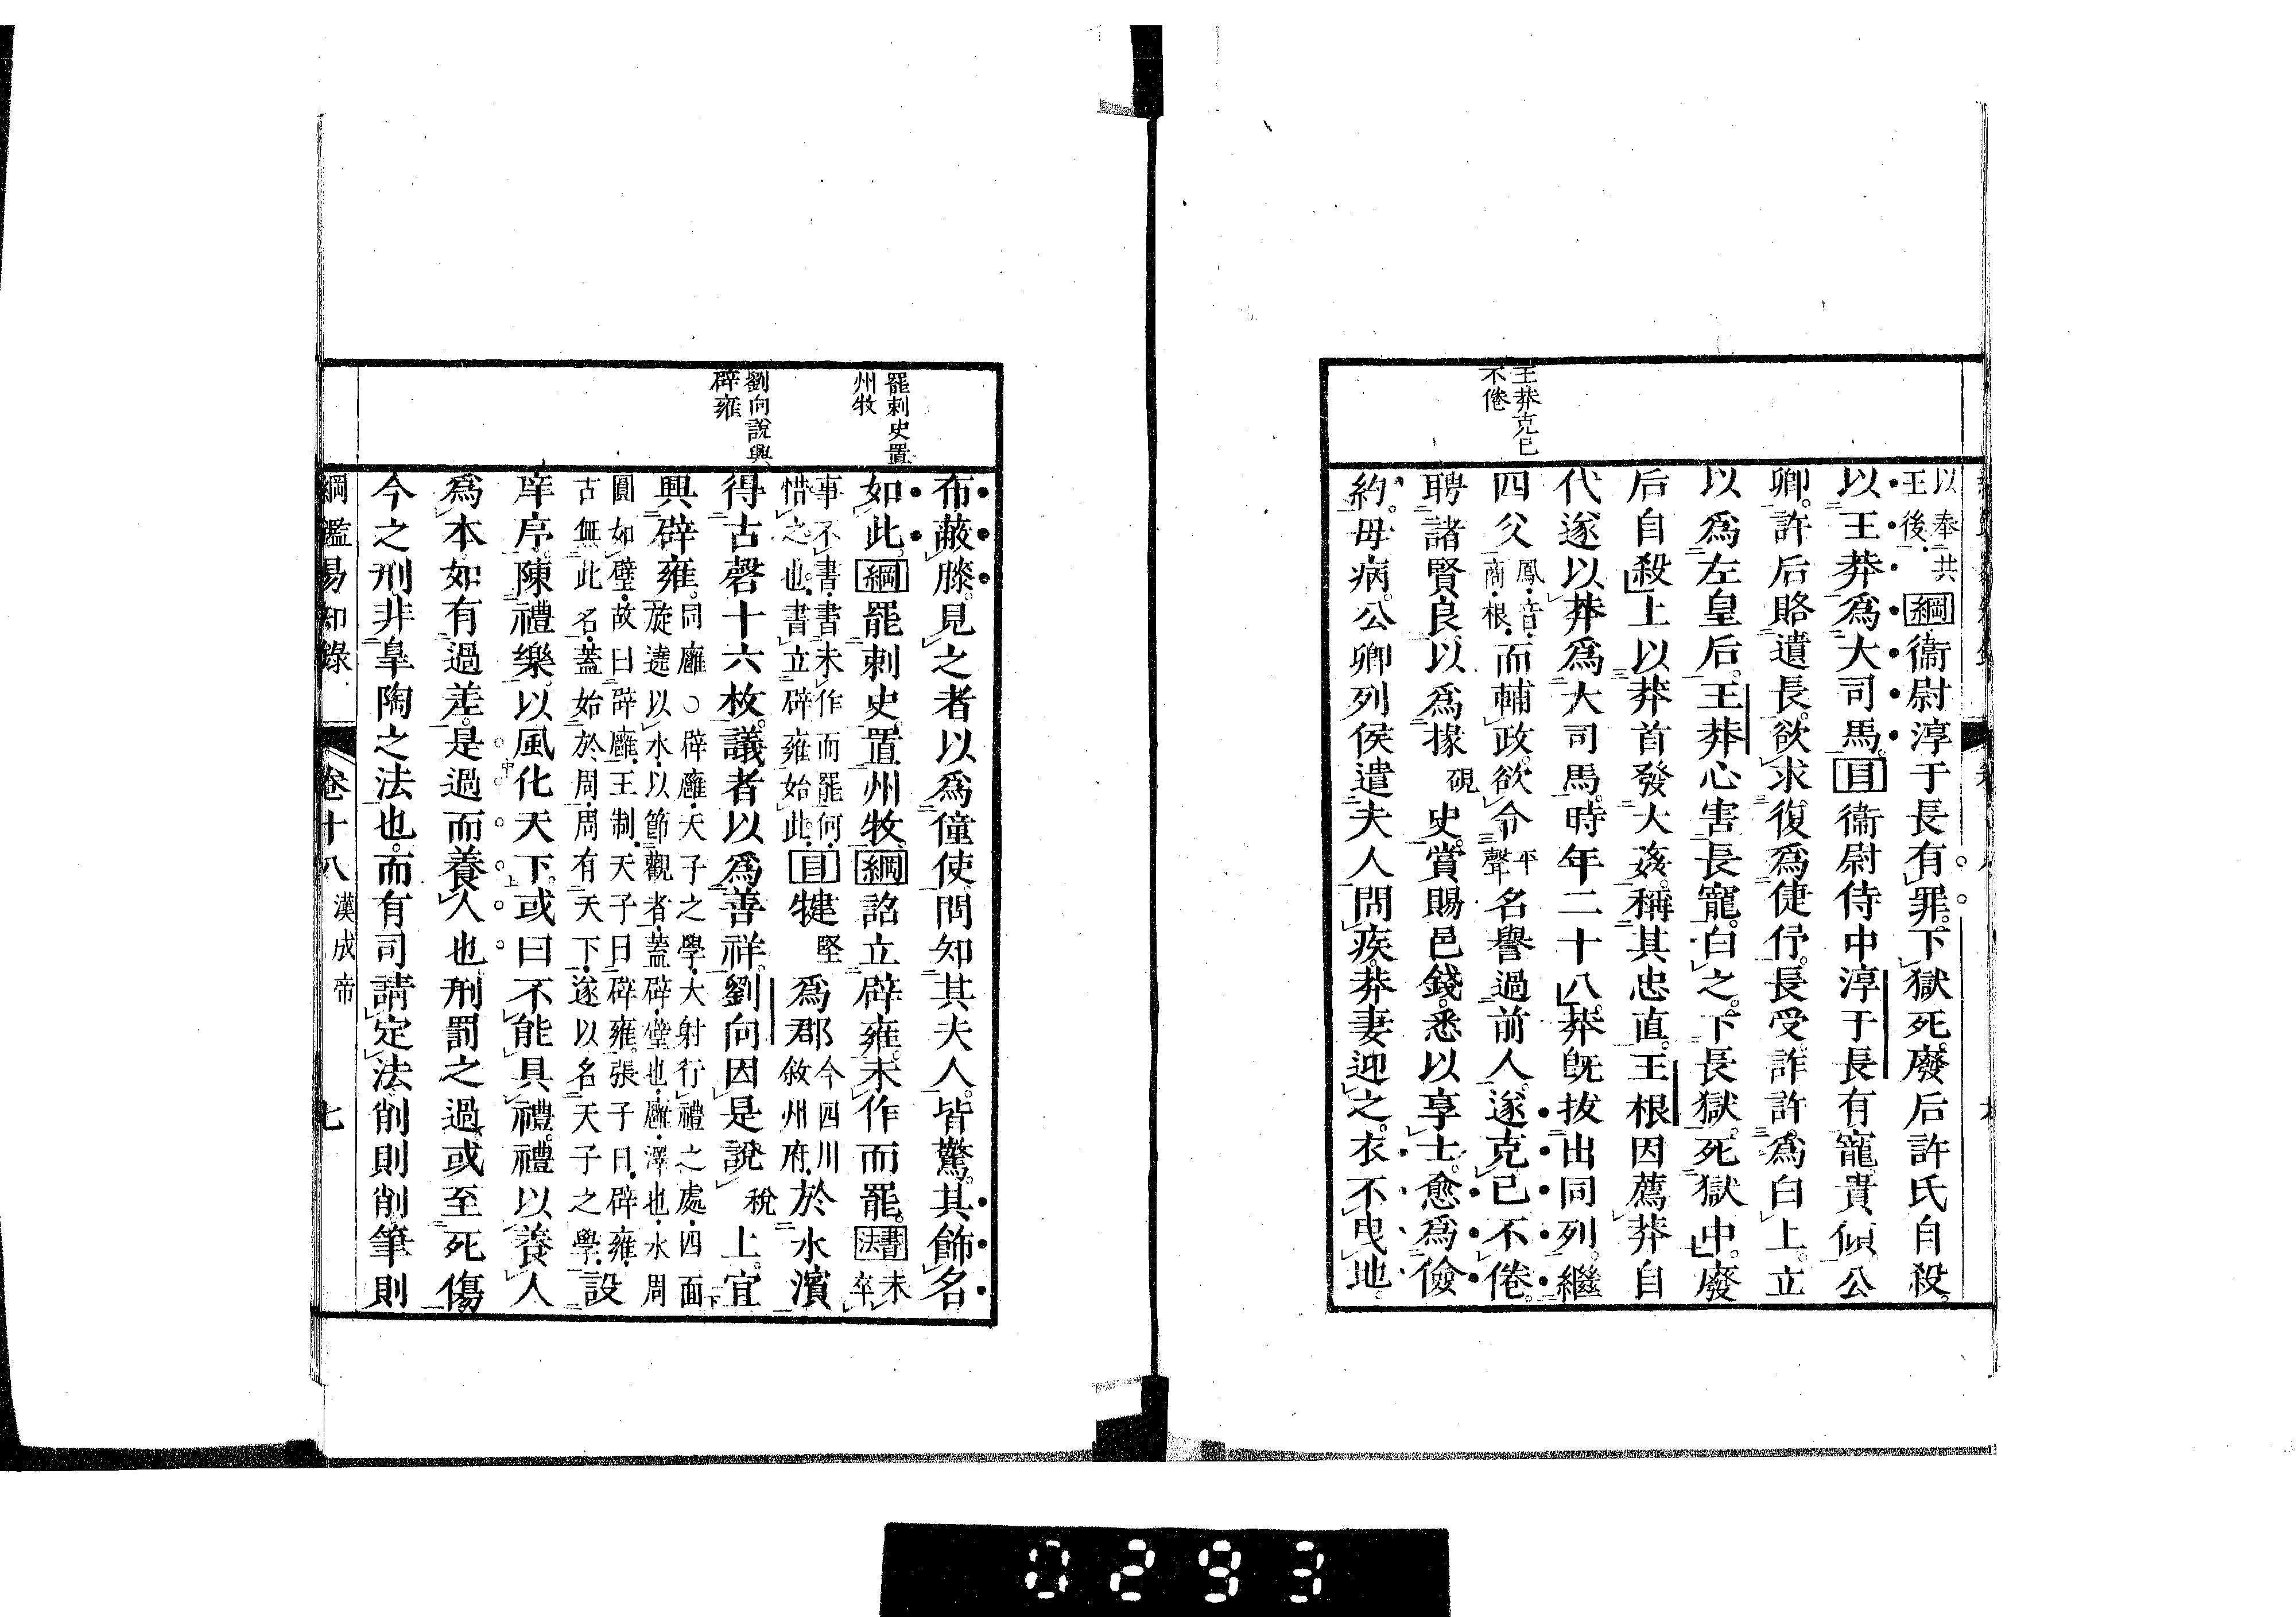 王莽克已
不倦
以奉共
王後
綱衞尉淳于長有罪下獄死廢后許氏自殺
以王莽爲大司馬目衞尉侍中淳于長有寵貴傾公
卿許后賂遺長欲求復爲倢伃長受詐許爲白上立
以爲左皇后王莽心害長寵白之下長獄死獄中廢
后自殺上以莽首發大姦稱其忠直王根因薦莽自
代遂以莽爲大司馬時年二十八莽旣拔出同列繼
四父鳳音商根而輔政欲令平聲名譽過前人遂克已不倦
聘諸賢良以爲掾硯史賞賜邑錢悉以享士愈爲儉
約母病公卿列侯遣夫人問疾莽妻迎之衣不曳地
罷刺史置
州牧
劉向說興
辟雍
布蔽膝見之者以爲僮使問知其夫人皆驚其飾名
如此綱罷刺史置州牧綱詔立辟雍未作而罷書法未卒
事不書書未作而罷何
惜之也書立辟雍始此
目犍堅爲郡今四川敘州府於水濱
得古磬十六枚議者以爲善祥劉向因是說稅上宜
興辟雍同廱○辟廱天子之學大射行禮之處四面
旋遶以水以節觀者蓋辟璧也廱澤也水周
圓如璧故曰辟廱王制天子曰辟雍張子曰辟雍
古無此名蓋始於周周有天下遂以名天子之學設
庠序陳禮樂以風化天下或曰不能具禮禮以養人
爲本如有過差是過而養人也刑罰之過或至死傷
今之刑非臯陶之法也而有司請定法削則削筆則
綱鑑易知錄 卷十八 漢成帝 七
0293